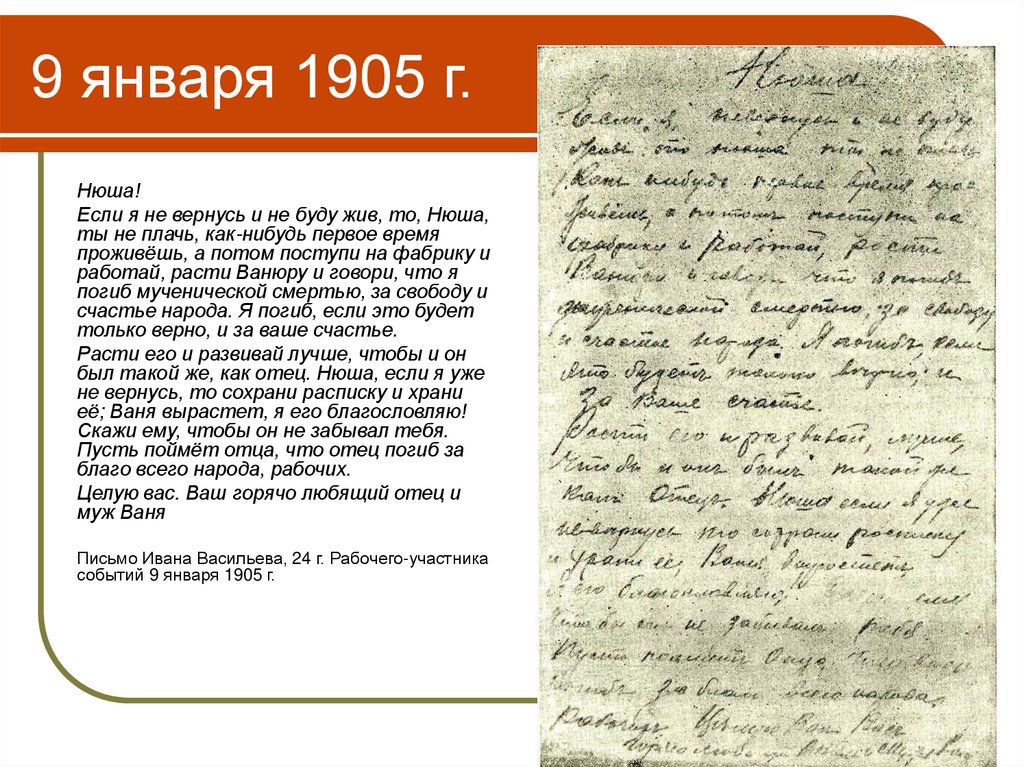 9 января 1905 г.
Нюша!
Если я не вернусь и не буду жив, то, Нюша,
ты не плачь, как-нибудь первое время
проживёшь, а потом поступи на фабрику и
работай, расти Ванюру и говори, что я
погиб мученической смертью, за свободу и
счастье народа. Я погиб, если это будет
только верно, и за ваше счастье.
Расти его и развивай лучше, чтобы и он
был такой же, как отец. Нюша, если я уже
не вернусь, то сохрани расписку и храни
её; Ваня вырастет, я его благословляю!
Скажи ему, чтобы он не забывал тебя.
Пусть поймёт отца, что отец погиб за
благо всего народа, рабочих.
Целую вас. Ваш горячо любящий отец и
муж Ваня
Письмо Ивана Васильева, 24 г. Рабочего-участника
событий 9 января 1905 г.
Нюша
Если я невернусь и не буду
живъ то нюша ты не плачь
Какъ нибудь первое время про
живешь, а потомъ поступи на
фабрику и Работай, рости
и говори что я погибъ
мученической смертью за свободу
и счастье народа. Я погибъ, если
это будетъ только верно, и
За Ваше счастье.
Рости его и развивай, лучше,
Чтобы и онъ былъ такой же
какъ Отецъ. Нюша если я уже
невернусь то сохрани росписку
и храни её, Ваня выростетъ
я его благословляю,
что бы онъ не забывалъ тебя
Пусть пойметъ Отца,
погибъ за благо всего народа,
Рабочихъ Целую Вас Вашъ
горячо